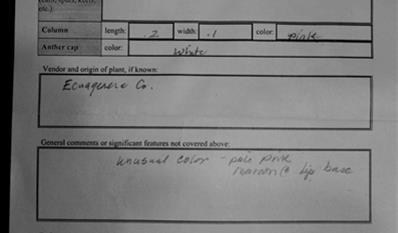 (cal..., spurs, keels, etc.):
Column length: .2 width: .1 color: pink
Anther cap color: white
Vendor and origin of plant, if known:
Ecuagenera Co.
General comments or significant features not covered above:
unusual color - pale pink
maroon @ lip base